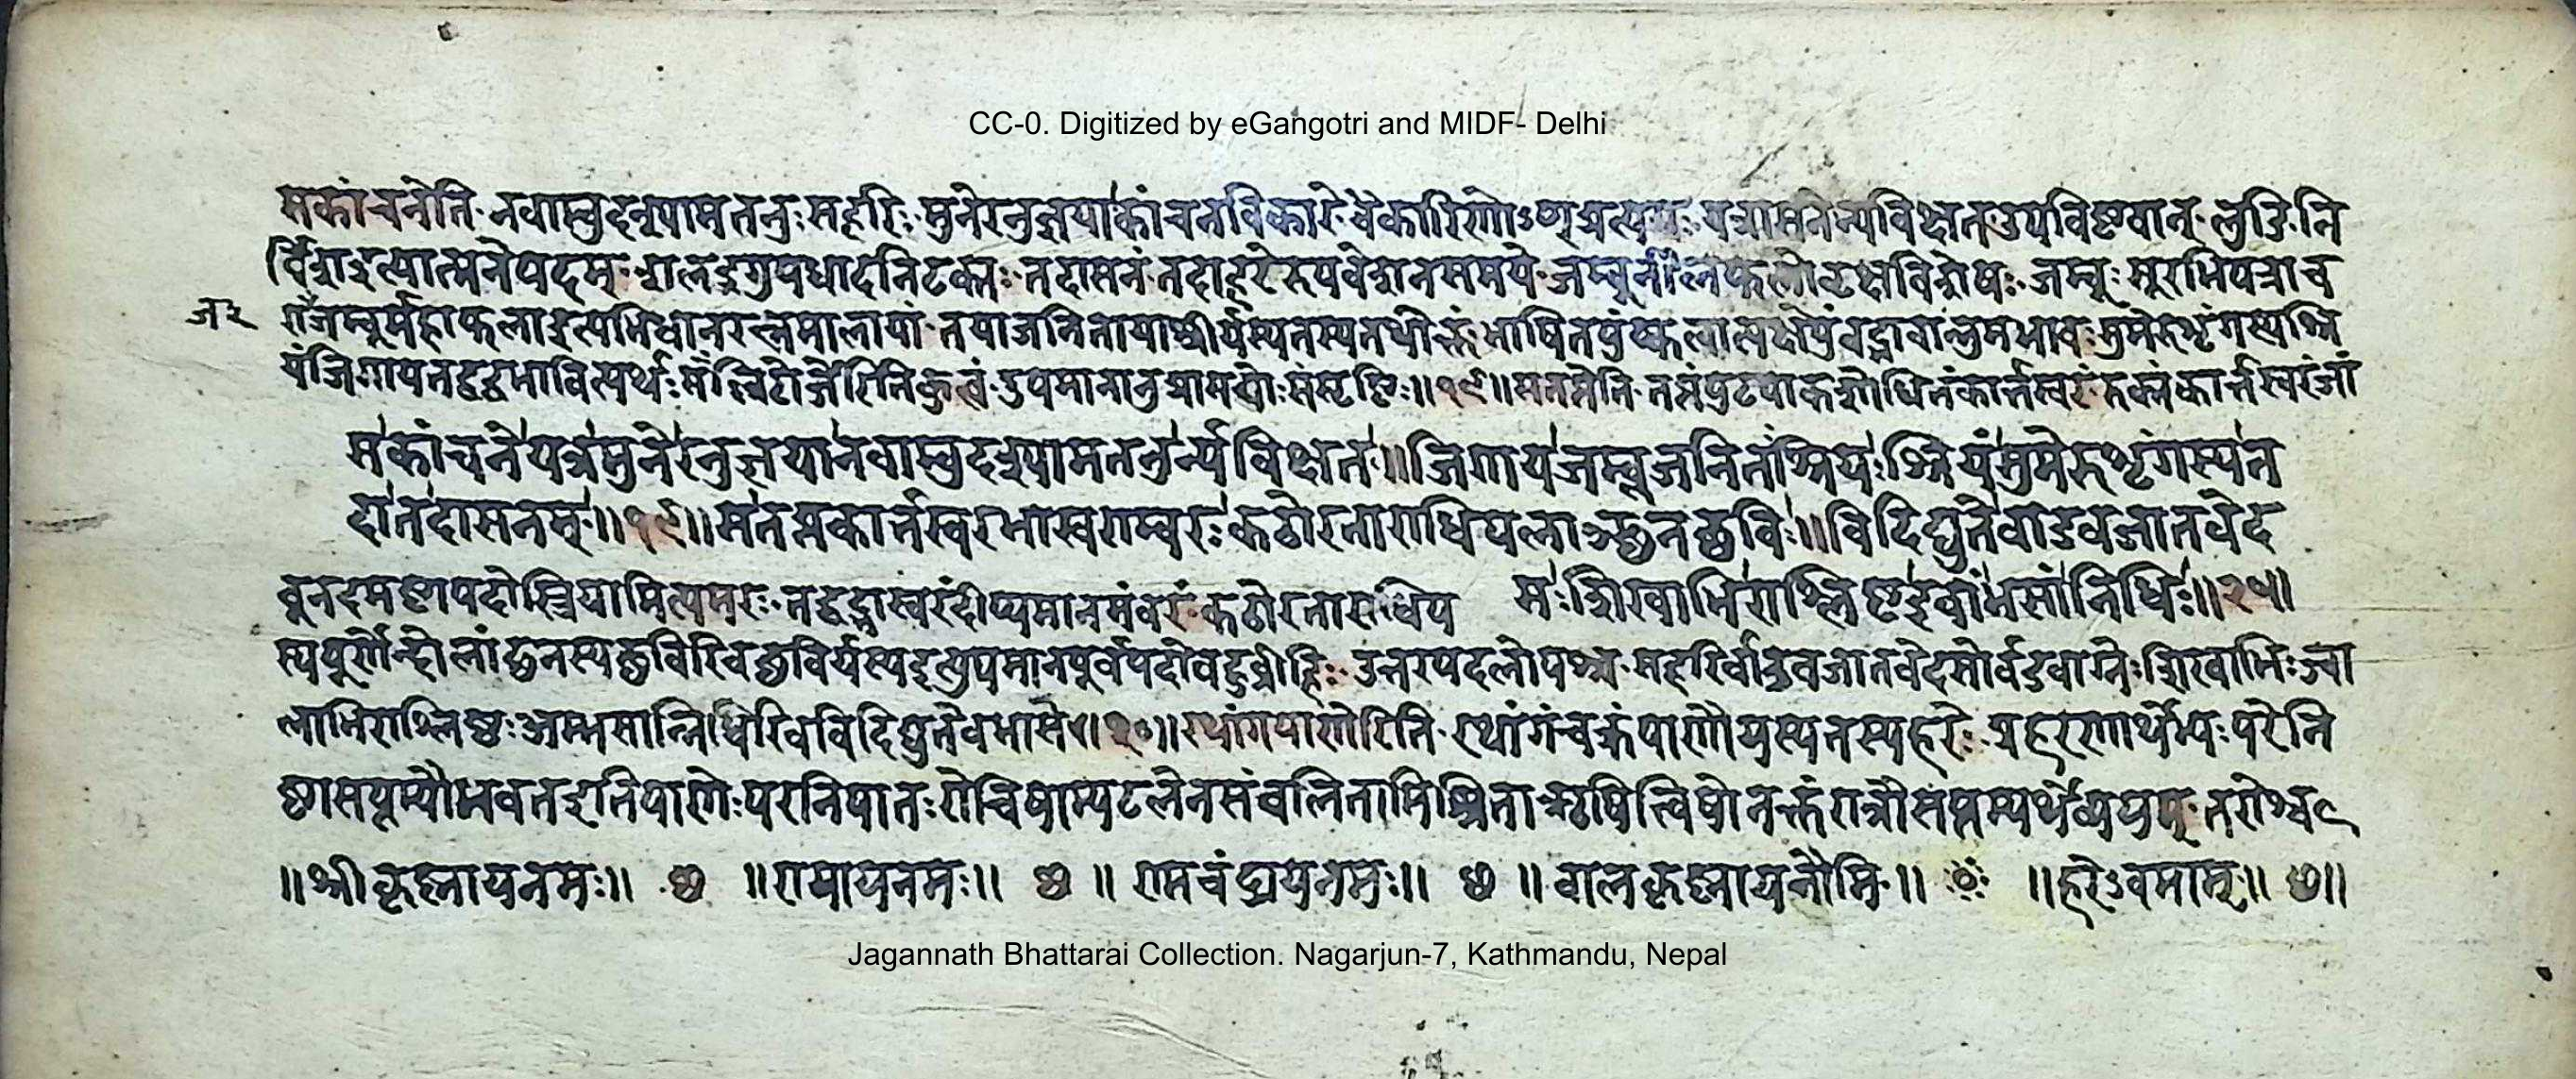 CC-0. Digitized by eGangotri and MIDF- Delhi
सकांचनेति नवाम्बुदश्यामतनुः सहरिः मुनेरनुज्ञया कांचनविकारे वैकारिकोऽण्प्रत्ययः यत्रासनेन्यविक्षत उपविष्टवान् लुङि नि
र्विश इत्यात्मनेपदम् शलइगुपधादनिटक्सः तदासनं तदा हरेरुपवेशनसमये जम्बूर्नीलफलो वृक्षविशेषः जम्बूः सुरभिपत्रा च
राजजम्बूर्महाफला इत्यभिधानरत्नमालायां तया जनितायाश्रीर्यस्यतस्यतथोक्तं भाषितपुंस्कत्वात्पक्षेपुंवद्भावान्नुमभावः सुमेरुशृंगस्यश्रि
यंजिगायतद्वद्बभावित्यर्थः सँल्लिटोर्जेरितिकुत्वं उपमानानुप्रासयोः संसृष्टिः ॥१९॥ सतप्तेति तप्तंपुटपाकशोधितंकार्तस्वरं रुक्मंकार्तस्वरंजां
सकांचने यत्र मुनेरनुज्ञया नवाम्बुदश्यामतनुर्न्यविक्षत ॥ जिगाय जम्बूजनितश्रियः श्रियं सुमेरुशृंगस्य त
दा तदासनम् ॥१९॥ स तप्तकार्तस्वरभास्वराम्बरः कठोरताराधिपलाञ्छनच्छविः ॥ विदिद्युते वाडवजातवेद
बूनदमष्टापदोस्त्रियामित्यमरः तद्वद्भास्वरंदीप्यमानमंबरं कठोरताराधिप
सः शिखाभिराश्लिष्ट इवांभसां निधिः ॥२०॥
स्यपूर्णेन्दोर्लांछनस्यछविरिवछविर्यस्यइत्युपमानपूर्वपदोबहुव्रीहिः उत्तरपदलोपश्च सहरिर्वाडवजातवेदसोर्वडवाग्नेः शिखाभिःज्वा
लाभिराश्लिष्टःअम्भसान्निधिरिवविदिद्युतेबभासे ॥२०॥ रथांगपाणेरिति रथांगंचक्रंपाणौयस्यतस्यहरेः प्रहरणार्थेभ्यः परेनि
ष्ठासप्तम्यौभवतइतिपाणेःपरनिपातः रोचिषाम्पटलेनसंवलितामिश्रिताऋषित्विषोनक्तंरात्रौसप्तम्यर्थेव्ययम् तरोश्चल
॥ श्रीकृष्णायनमः ॥ छ ॥ रामायनमः ॥ छ ॥ रामचंद्रायनमः ॥ छ ॥ बालकृष्णायनौमि ॥ ॥ हरेऽवमाम् ॥ छ ॥
Jagannath Bhattarai Collection. Nagarjun-7, Kathmandu, Nepal